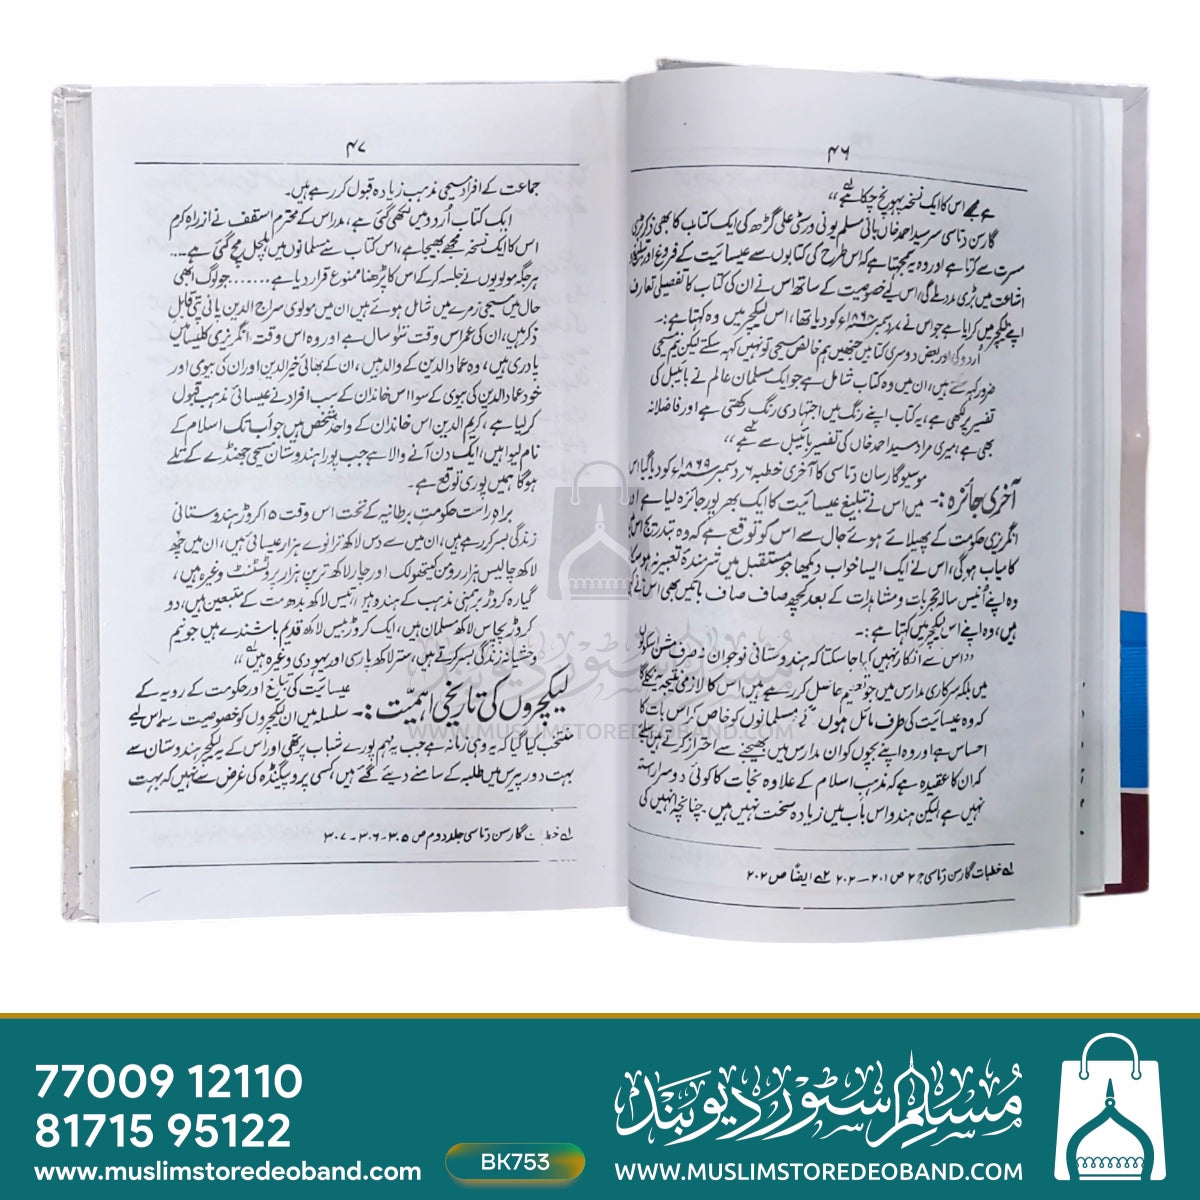 ۴۶
ہے مجھے اس کا ایک نسخہ پہونچ چکا ہے ؎۱ ،،
گارسن دتاسی سر سید احمد خاں بانی مسلم یونی ورسٹی علی گڑھ کی ایک کتاب کا بھی ذکر بڑی
مسرت سے کرتا ہے اور وہ یہ سمجھتا ہے کہ اس طرح کی کتابوں سے عیسائیت کے فروغ اور تبلیغ و
اشاعت میں بڑی مدد ملے گی اس لیے خصوصیت کے ساتھ اس نے ان کی کتاب کا تفصیلی تعارف
اپنے لیکچر میں کرایا ہے جو اس نے ۷ دسمبر ۱۸۶۸ء کو دیا تھا، اس لیکچر میں وہ کہتا ہے :۔
اُردو کی اور بعض دوسری کتابیں جنھیں ہم خالص مسیحی تو نہیں کہہ سکتے لیکن نیم مسیحی
ضرور کہہ سکتے ہیں، ان میں وہ کتاب شامل ہے جو ایک مسلمان عالم نے بائیبل کی
تفسیر پر لکھی ہے، یہ کتاب اپنے رنگ میں اجتہادی رنگ رکھتی ہے اور فاضلانہ
بھی ہے، میری مراد سید احمد خاں کی تفسیر بائیبل سے ہے ؎۲ ،،
موسیو گارسان دتاسی کا آخری خطبہ ۶ دسمبر ۱۸۶۹ء کو دیا گیا اس
آخری جائزہ :۔ میں اس نے تبلیغ عیسائیت کا ایک بھر پور جائزہ لیا ہے اور
انگریزی حکومت کے پھیلائے ہوئے جال سے اس کو توقع ہے کہ وہ بتدریج اس میں
کامیاب ہوگی، اس نے ایک ایسا خواب دیکھا جو مستقبل میں شرمندۂ تعبیر نہ ہو سکا
وہ اپنے اُنیس سالہ تجربات و مشاہدات کے بعد کچھ صاف صاف باتیں بھی اس نے کہی
ہیں، وہ اپنے اس لیکچر میں کہتا ہے :۔
،، اس سے انکار نہیں کیا جا سکتا کہ ہندوستانی نوجوان نہ صرف مشن اسکولوں
میں بلکہ سرکاری مدارس میں جو تعلیم حاصل کر رہے ہیں، اس کا لازمی نتیجہ یہ نکلے گا
کہ وہ عیسائیت کی طرف مائل ہوں گے، مسلمانوں کو خاص کر اس بات کا
احساس ہے اور وہ اپنے بچوں کو ان مدارس میں بھیجنے سے احتراز کرتے ہیں
کہ ان کا عقیدہ ہے کہ مذہب اسلام کے علاوہ نجات کا کوئی دوسرا راستہ
نہیں ہے لیکن ہندو اس باب میں زیادہ سخت نہیں ہیں۔ چنانچہ انہیں کی
؎۱ خطبات گارسن دتاسی ج ۲ ص ۲۰۱ ـ ۲۰۲ ؎۲ ایضًا ص ۲۰۲
۴۷
جماعت کے افراد مسیحی مذہب زیادہ قبول کر رہے ہیں۔
ایک کتاب اُردو میں لکھی گئی ہے، مدراس کے محترم اسقف نے از راہِ کرم
اس کا ایک نسخہ مجھے بھیجا ہے، اس کتاب نے مسلمانوں میں ہلچل مچ گئی ہے۔۔۔۔
ہر جگہ مولویوں نے جلسہ کر کے اس کا پڑھنا ممنوع قرار دیا ہے ........ جو لوگ ابھی
حال میں مسیحی زمرے میں شامل ہوئے ہیں ان میں مولوی سراج الدین پانی پتی قابل
ذکر ہیں، ان کی عمر اس وقت نٹو سال ہے اور وہ اس وقت انگریزی کلیسا میں
پادری ہیں، وہ عماد الدین کے والد ہیں، ان کے بھائی خیر الدین اور ان کی بیوی اور
خود عماد الدین کی بیوی کے سوا اس خاندان کے سب افراد نے عیسائی مذہب قبول
کر لیا ہے، کریم الدین اس خاندان کے واحد شخص ہیں جو اب تک اسلام کے
نام لیوا ہیں، ایک دن آنے والا ہے جب پورا ہندوستان مسیحی جھنڈے کے تلے
ہوگا ہمیں پوری توقع ہے۔
براہ راست حکومت برطانیہ کے تحت اس وقت ۱۵ کروڑ ہندوستانی
زندگی بسر کر رہے ہیں، ان میں سے دس لاکھ ترانوے ہزار عیسائی ہیں، ان میں چھ
لاکھ چالیس ہزار رومن کیتھولک اور چار لاکھ ترپن ہزار پروٹسٹنٹ وغیرہ ہیں،
گیارہ کروڑ برہمنی مذہب کے ہندو ہیں، تیس لاکھ بدھ مت کے متبعین ہیں، دو
کروڑ پچاس لاکھ مسلمان ہیں، ایک کروڑ بیس لاکھ قدیم باشندے ہیں جو نیم
وحشیانہ زندگی بسر کرتے ہیں، ستر لاکھ پارسی اور یہودی وغیرہ ہیں ؎۱ ،،
عیسائیت کی تبلیغ اور حکومت کے رویہ کے
لیکچروں کی تاریخی اہمیّت :۔ سلسلہ میں ان لیکچروں کو خصوصیت سے اس لیے
منتخب کیا گیا کہ یہ وہی زمانہ ہے جب یہ مہم پورے شباب پر تھی اور اس کے یہ لیکچر ہندوستان سے
بہت دور پیرس میں طلبہ کے سامنے دیئے گئے ہیں، کسی پروپیگنڈہ کی غرض سے نہیں کہ بہت
؎۱ خطبات گارسن دتاسی جلد دوم ص ۳۰۵ ـ ۳۰۶ ـ ۳۰۷
مسلم سٹور دیوبند
WWW.MUSLIMSTOREDEOBAND.COM
77009 12110
81715 95122
www.muslimstoredeoband.com
BK753
مسلم سٹور دیوبند
WWW.MUSLIMSTOREDEOBAND.COM